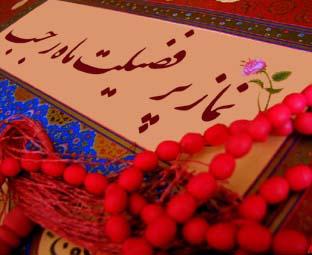 نماز پر فضیلت ماه رجب